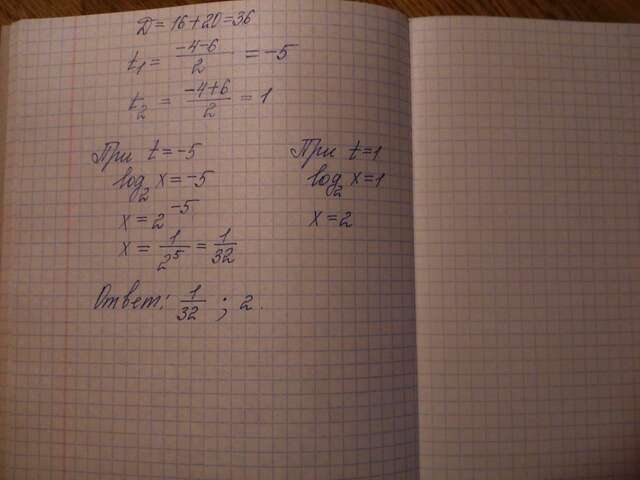 Д = 16 + 20 = 36
t₁ = (-4-6)/2 = -5
t₂ = (-4+6)/2 = 1
При t = -5
log₂ x = -5
x = 2⁻⁵
x = 1/2⁵ = 1/32
При t = 1
log₂ x = 1
x = 2
Ответ: 1/32 ; 2.